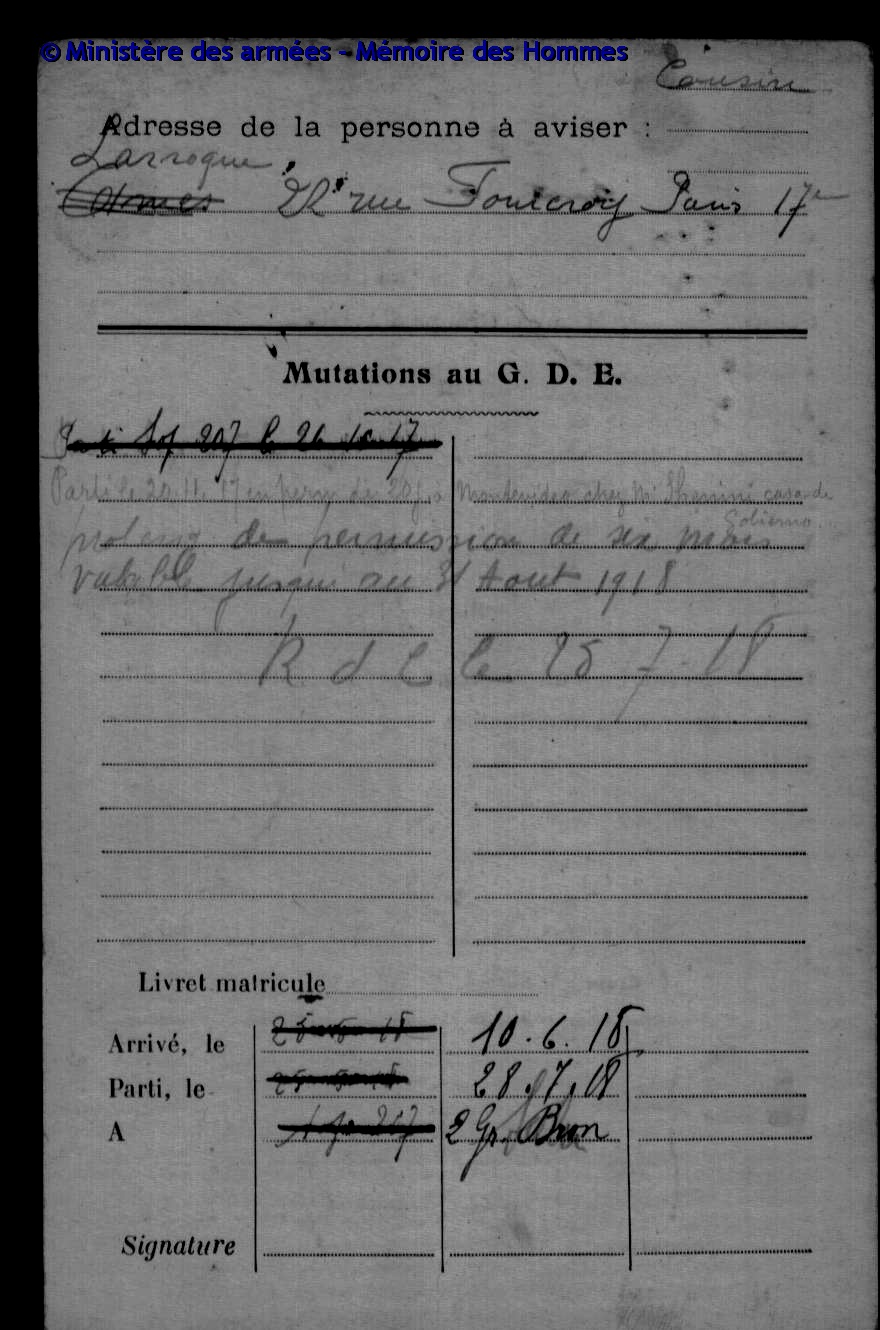 © Ministère des armées - Mémoire des Hommes
Cousin
Adresse de la personne à aviser :
Larroque
22 rue Fourcroy Paris 17e
Mutations au G. D. E.
Parti Sof 207 le 26 10 17
Parti le 20.11.17 en perm de 20 j. à Montevideo chez Mr casa de
Gobierno
de permission de six mois
valable jusqu'au 31 Aout 1918
R d C le 25 7-18
Livret matricule
Arrivé, le 10.6.18
Parti, le 28.7.18
A 2 Gr. Bron
Signature